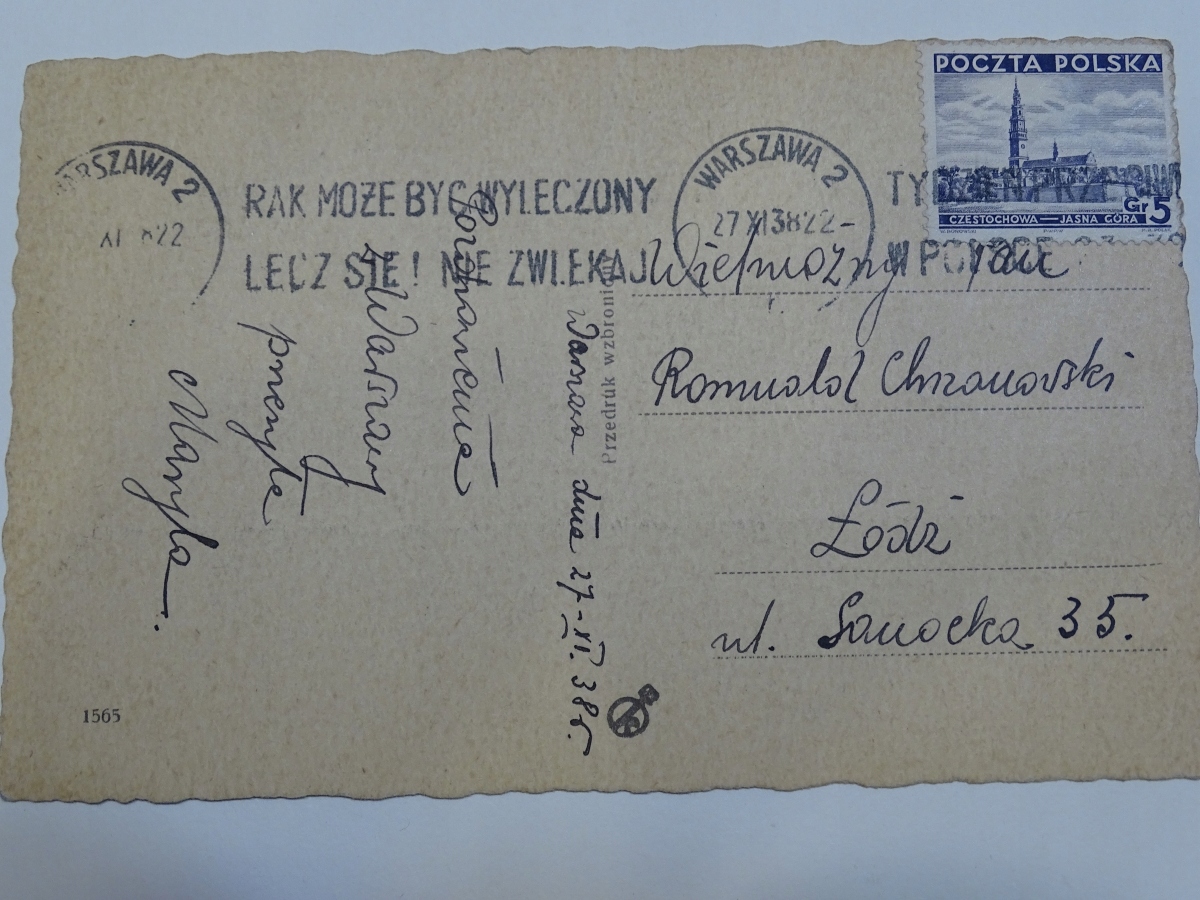 POCZTA POLSKA
Gr. 5
CZĘSTOCHOWA — JASNA GÓRA
WARSZAWA 2
XI 22
RAK MOŻE BYĆ WYLECZONY
LECZ SIĘ! NIE ZWLEKAJ
WARSZAWA 2
27 XI 38 22-
W POLSCE
Wielmożny Pan
Romuald Chrzanowski
Łódź
ul. Sanocka 35.
Przedruk wzbronion
Warszawa dnia 27-XI. 38 r.
Pozdrowienia
z Warszawy
przesyła
Maryla.
1565